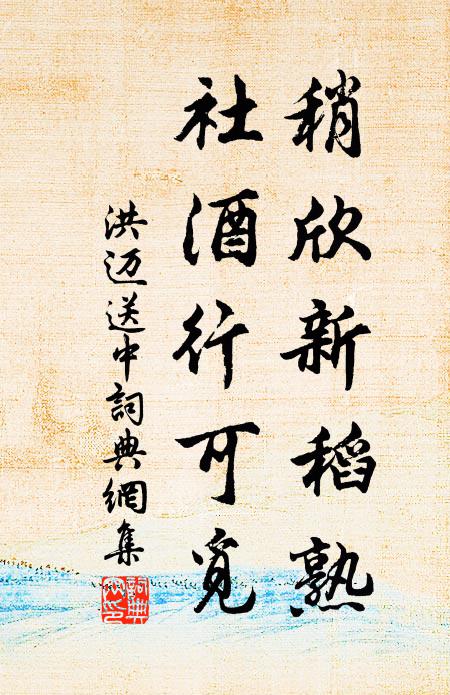 稍欣新稻熟
社酒行可覓
洪迈送中詞典網集